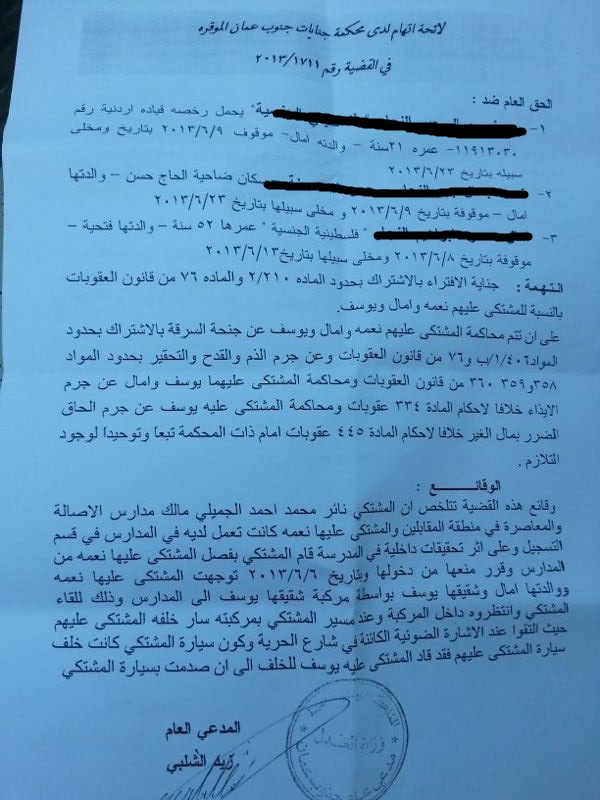 لائحة اتهام لدى محكمة جنايات جنوب عمان الموقره
في القضية رقم ٢٠١٣/١٧١١
الحق العام ضد :
١- يحمل رخصه قياده اردنية رقم
١١٩١٣٠٣٠- عمره ٢١سنة - والدته امال- موقوف ٢٠١٣/٦/٩ بتاريخ ومخلى
سبيله بتاريخ ٢٠١٣/٦/٢٣
٢- سكان ضاحية الحاج حسن – والدتها
امال – موقوفة بتاريخ ٢٠١٣/٦/٩ و مخلى سبيلها بتاريخ ٢٠١٣/٦/٢٣
٣- " فلسطينية الجنسية " عمرها ٥٢ سنة – والدتها فتحية –
موقوفة بتاريخ ٢٠١٣/٦/٨ ومخلى سبيلها بتاريخ٢٠١٣/٦/١٣
التهمة : جناية الافتراء بالاشتراك بحدود الماده ٢/٢١٠ والماده ٧٦ من قانون العقوبات
بالنسبة للمشتكى عليهم نعمه وامال ويوسف.
على ان تتم محاكمة المشتكى عليهم نعمه وامال ويوسف عن جنحة السرقة بالاشتراك بحدود
المواد١/٤٠٦/ب و٧٦ من قانون العقوبات وعن جرم الذم والقدح والتحقير بحدود المواد
٣٥٨و٣٥٩ ٣٦٠ من قانون العقوبات ومحاكمة المشتكى عليهما يوسف وامال عن جرم
الايذاء خلافا لاحكام المادة ٣٣٤ عقوبات ومحاكمة المشتكى عليه يوسف عن جرم الحاق
الضرر بمال الغير خلافا لاحكام المادة ٤٤٥ عقوبات امام ذات المحكمة تبعا وتوحيدا لوجود
التلازم .
الوقائع :
وقائع هذه القضية تتلخص ان المشتكي نائر محمد احمد الجميلي مالك مدارس الاصالة
والمعاصرة في منطقة المقابلين والمشتكى عليها نعمه كانت تعمل لديه في المدارس في قسم
التسجيل وعلى اثر تحقيقات داخلية في المدرسة قام المشتكي بفصل المشتكى عليها نعمه من
المدارس وقرر منعها من دخولها وبتاريخ ٢٠١٣/٦/٦ توجهت المشتكى عليها نعمه
ووالدتها امال وشقيقها يوسف بواسطة مركبة شقيقها يوسف الى المدارس وذلك للقاء
المشتكي وانتظروه داخل المركبة وعند مسير المشتكي بمركبته سار خلفه المشتكى عليهم
حيث التقوا عند الاشارة الضوئية الكائنة في شارع الحرية وكون سيارة المشتكي كانت خلف
سيارة المشتكى عليهم فقد قاد المشتكى عليه يوسف للخلف الى ان صدمت بسيارة المشتكي
المدعي العام
زيد الشلبي
وزارة العدل